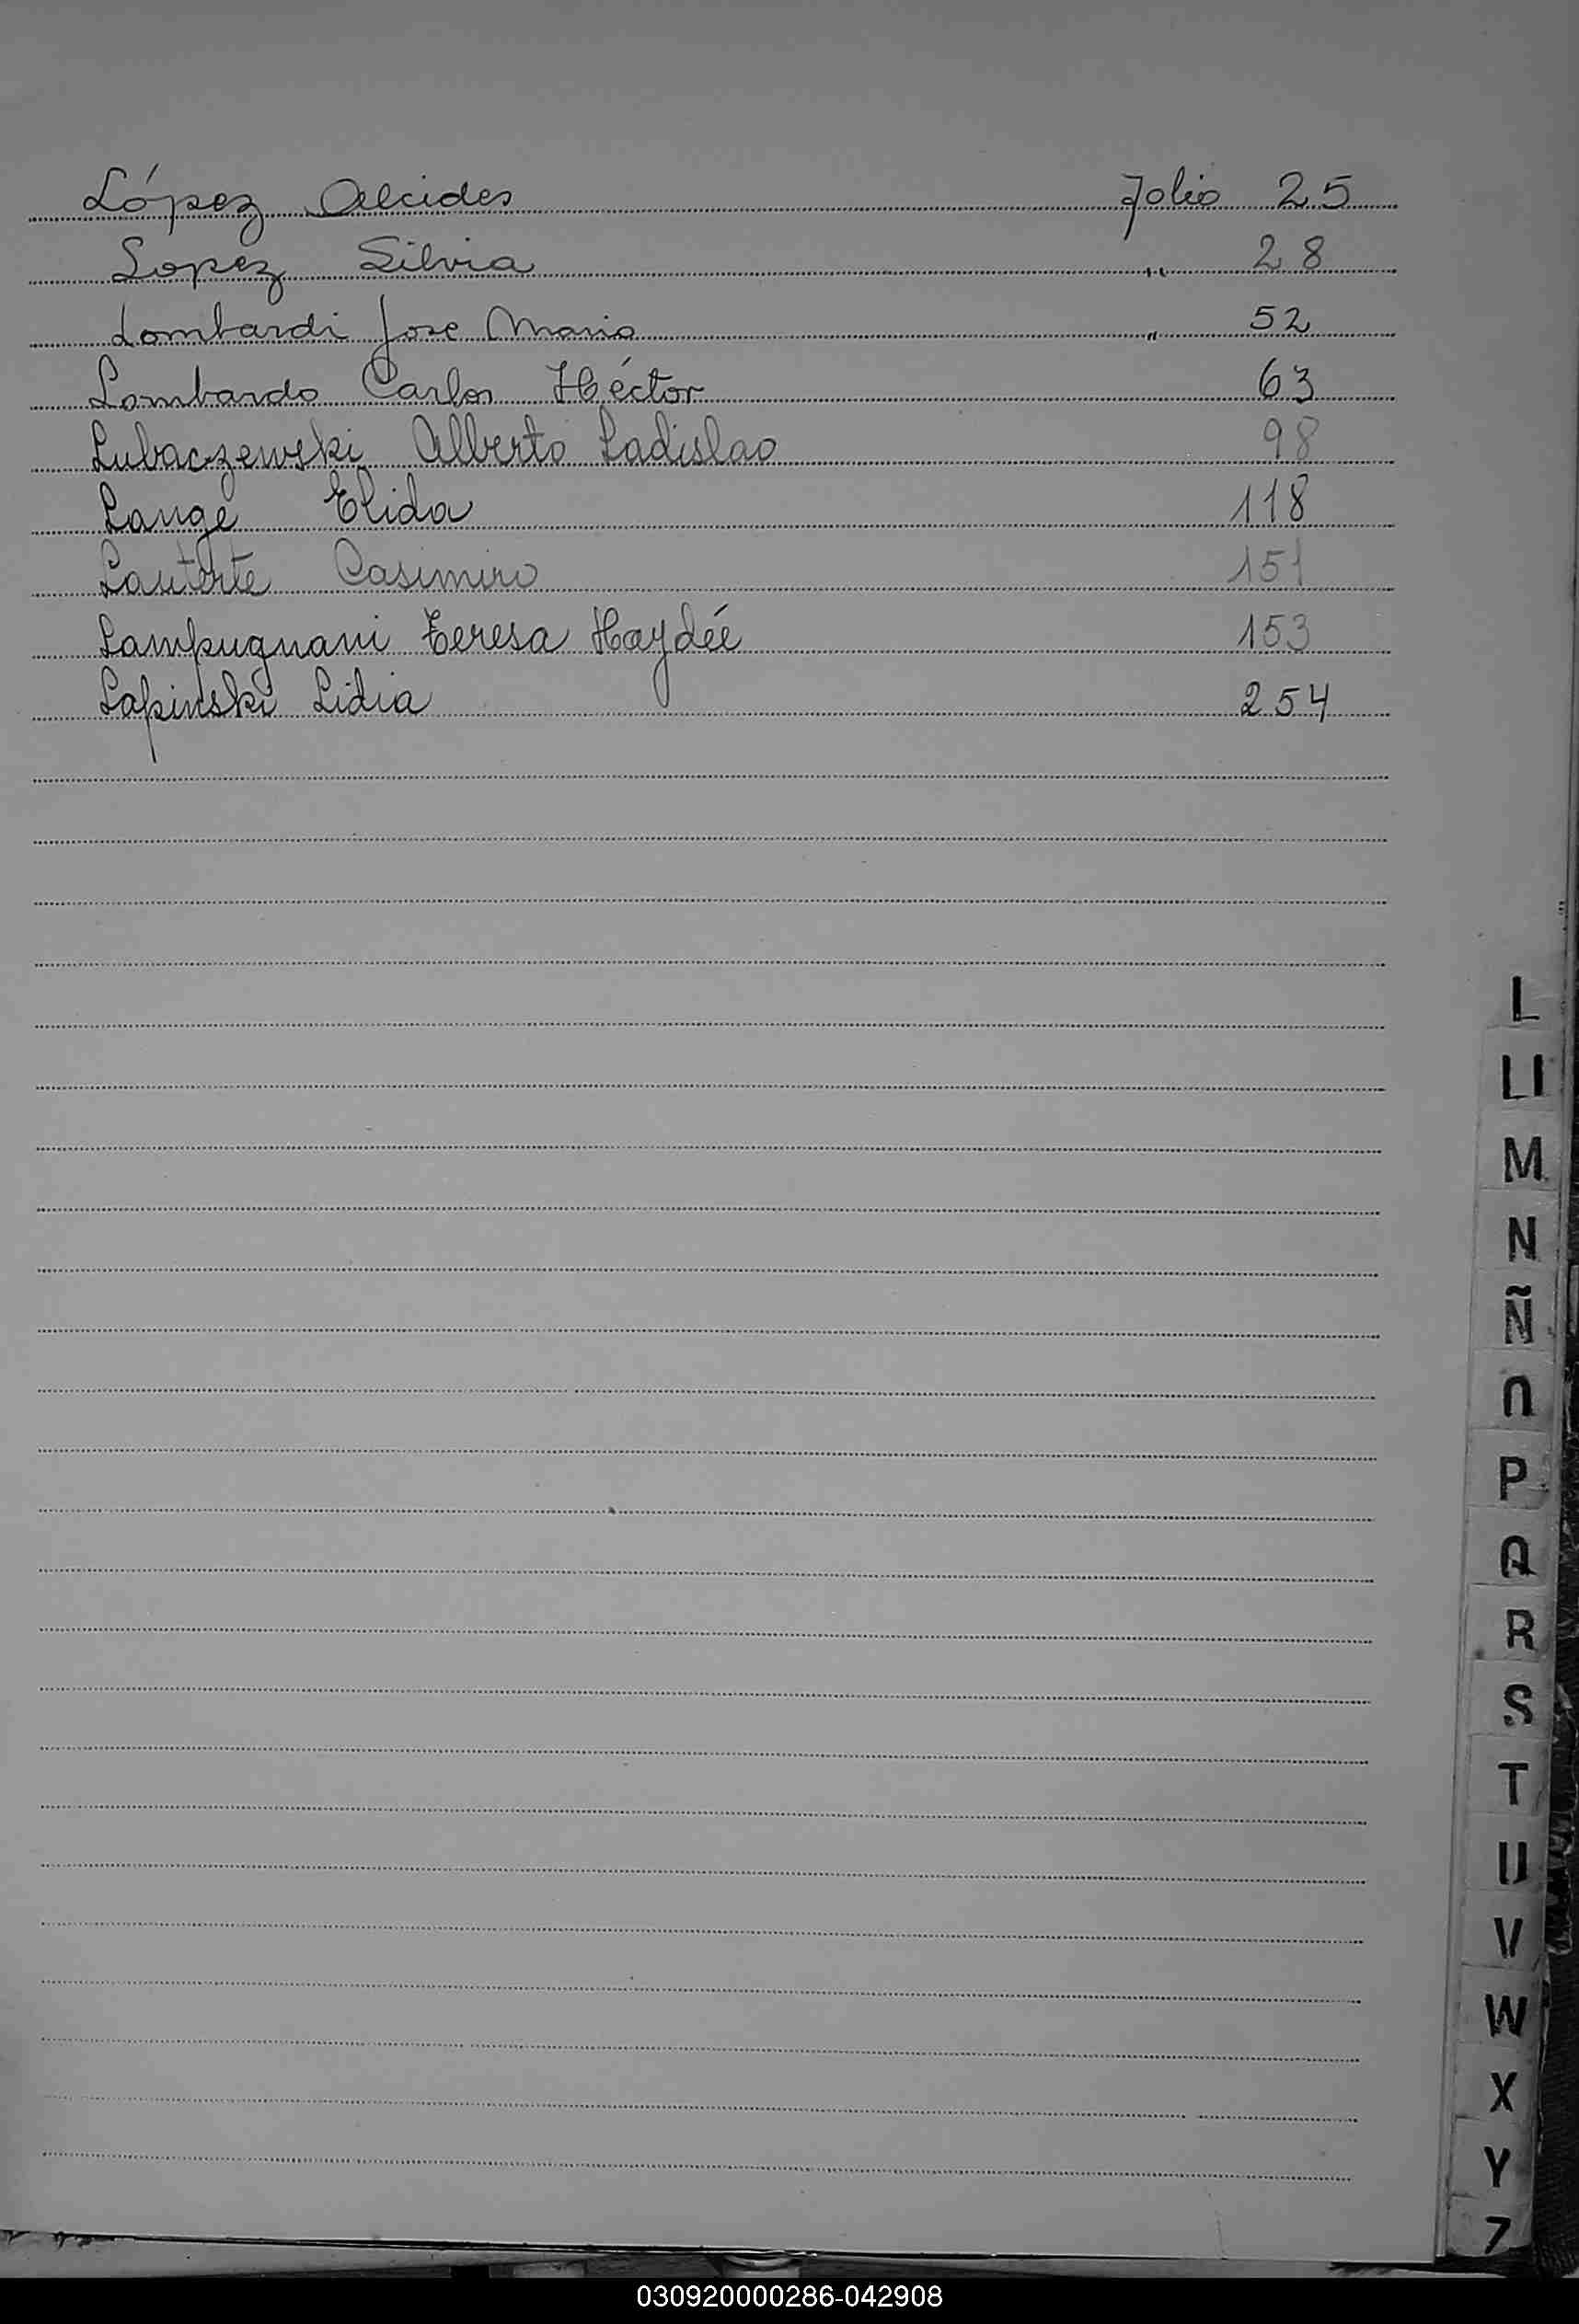 López Alcides Folio 25
Lopez Silvia " 28
Lombardi Jose Maria " 52
Lombardo Carlos Héctor 63
Lubaczewski Alberto Ladislao 98
Lange Elida 118
Casimiro 151
Lampugnani Teresa Haydée 153
Lapinski Lidia 254
L
Ll
M
N
Ñ
O
P
Q
R
S
T
U
V
W
X
Y
Z
030920000286-042908